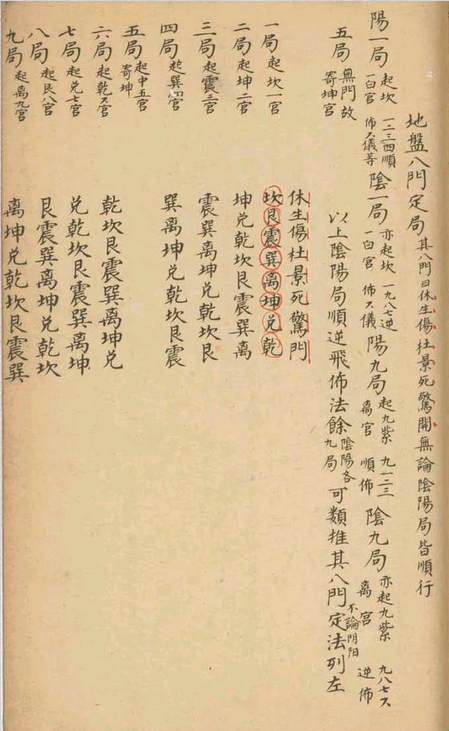 地盤八門定局 其八門曰休生傷杜景死驚開無論陰陽局皆順行
陽一局 起坎一白宮 一二三四順佈六儀等 陰一局 亦起坎一白宮 一九八七逆佈六儀 陽九局 起九紫離宮 九一二三順佈 陰九局 亦起九紫離宮 九八七六逆佈
五局 無門故寄坤宮 以上陰陽局順逆飛佈法餘 陰陽各九局 可類推其八門 不論阴阳 定法列左
休生傷杜景死驚門
一局 起坎一宮 坎艮震巽離坤兌乾
二局 起坤二宮 坤兌乾坎艮震巽離
三局 起震三宮 震巽離坤兌乾坎艮
四局 起巽四宮 巽離坤兌乾坎艮震
五局 起中五宮寄坤
六局 起乾六宮 乾坎艮震巽離坤兌
七局 起兌七宮 兌乾坎艮震巽離坤
八局 起艮八宮 艮震巽離坤兌乾坎
九局 起離九宮 離坤兌乾坎艮震巽